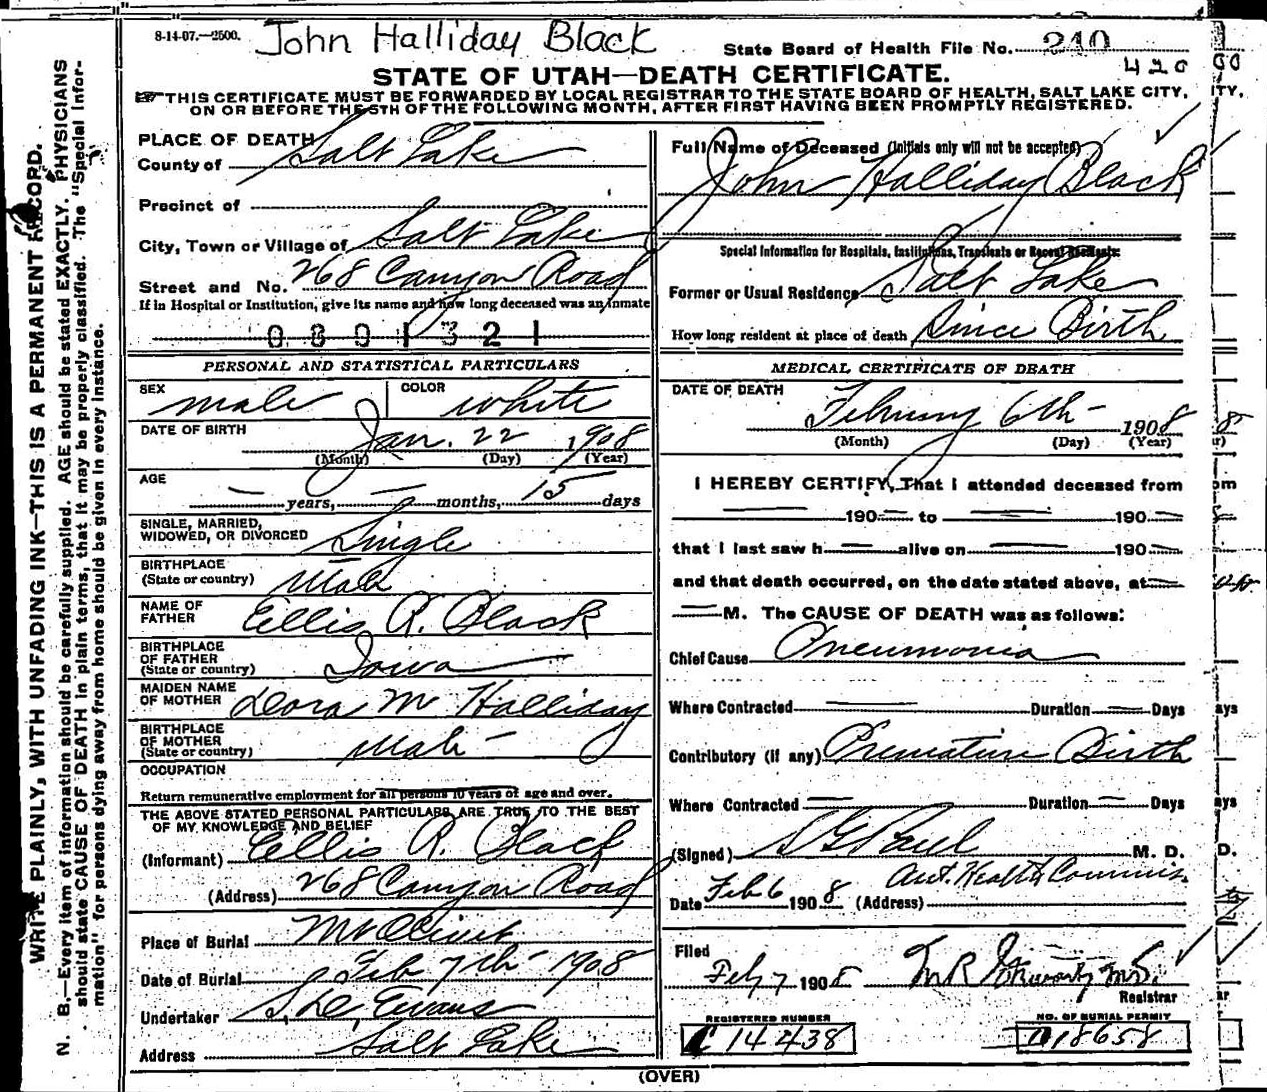 8-14-07.—2500. John Halliday Black
State Board of Health File No. 240
420
STATE OF UTAH—DEATH CERTIFICATE.
THIS CERTIFICATE MUST BE FORWARDED BY LOCAL REGISTRAR TO THE STATE BOARD OF HEALTH, SALT LAKE CITY,
ON OR BEFORE THE 5TH OF THE FOLLOWING MONTH, AFTER FIRST HAVING BEEN PROMPTLY REGISTERED.
WRITE PLAINLY, WITH UNFADING INK—THIS IS A PERMANENT RECORD.
N. B.—Every item of information should be carefully supplied. AGE should be stated EXACTLY. PHYSICIANS
should state CAUSE OF DEATH in plain terms, that it may be properly classified. The "Special Infor-
mation" for persons dying away from home should be given in every instance.
PLACE OF DEATH
County of Salt Lake
Precinct of
City, Town or Village of Salt Lake
Street and No. 268 Canyon Road
If in Hospital or Institution, give its name and how long deceased was an inmate
0801321
PERSONAL AND STATISTICAL PARTICULARS
SEX male COLOR white
DATE OF BIRTH Jan. 22 1908
(Month) (Day) (Year)
AGE — years, — months, 15 days
SINGLE, MARRIED,
WIDOWED, OR DIVORCED Single
BIRTHPLACE
(State or country) Utah
NAME OF
FATHER Ellis R. Black
BIRTHPLACE
OF FATHER
(State or country) Iowa
MAIDEN NAME
OF MOTHER Dora M Halliday
BIRTHPLACE
OF MOTHER
(State or country) Utah
OCCUPATION
Return remunerative employment for all persons 10 years of age and over.
THE ABOVE STATED PERSONAL PARTICULARS ARE TRUE TO THE BEST
OF MY KNOWLEDGE AND BELIEF
(Informant) Ellis R. Black
(Address) 268 Canyon Road
Place of Burial Mt Olivet
Date of Burial Feb 7th 1908
Undertaker S. D. Evans
Address Salt Lake
Full Name of Deceased (Initials only will not be accepted)
John Halliday Black
Special Information for Hospitals, Institutions, Transients or Recent Residents:
Former or Usual Residence Salt Lake
How long resident at place of death Since Birth
MEDICAL CERTIFICATE OF DEATH
DATE OF DEATH
February 6th 1908
(Month) (Day) (Year)
I HEREBY CERTIFY, That I attended deceased from
— 190— to — 190—
that I last saw h— alive on — 190—
and that death occurred, on the date stated above, at—
—M. The CAUSE OF DEATH was as follows:
Chief Cause Pneumonia
Where Contracted — Duration — Days
Contributory (if any) Premature Birth
Where Contracted — Duration — Days
(Signed) S G Paul M. D.
Asst. Health Commis.
Date Feb 6 1908 (Address)
Filed
Feb 7 1908
Registrar
REGISTERED NUMBER
C 14438
NO. OF BURIAL PERMIT
18658
(OVER)